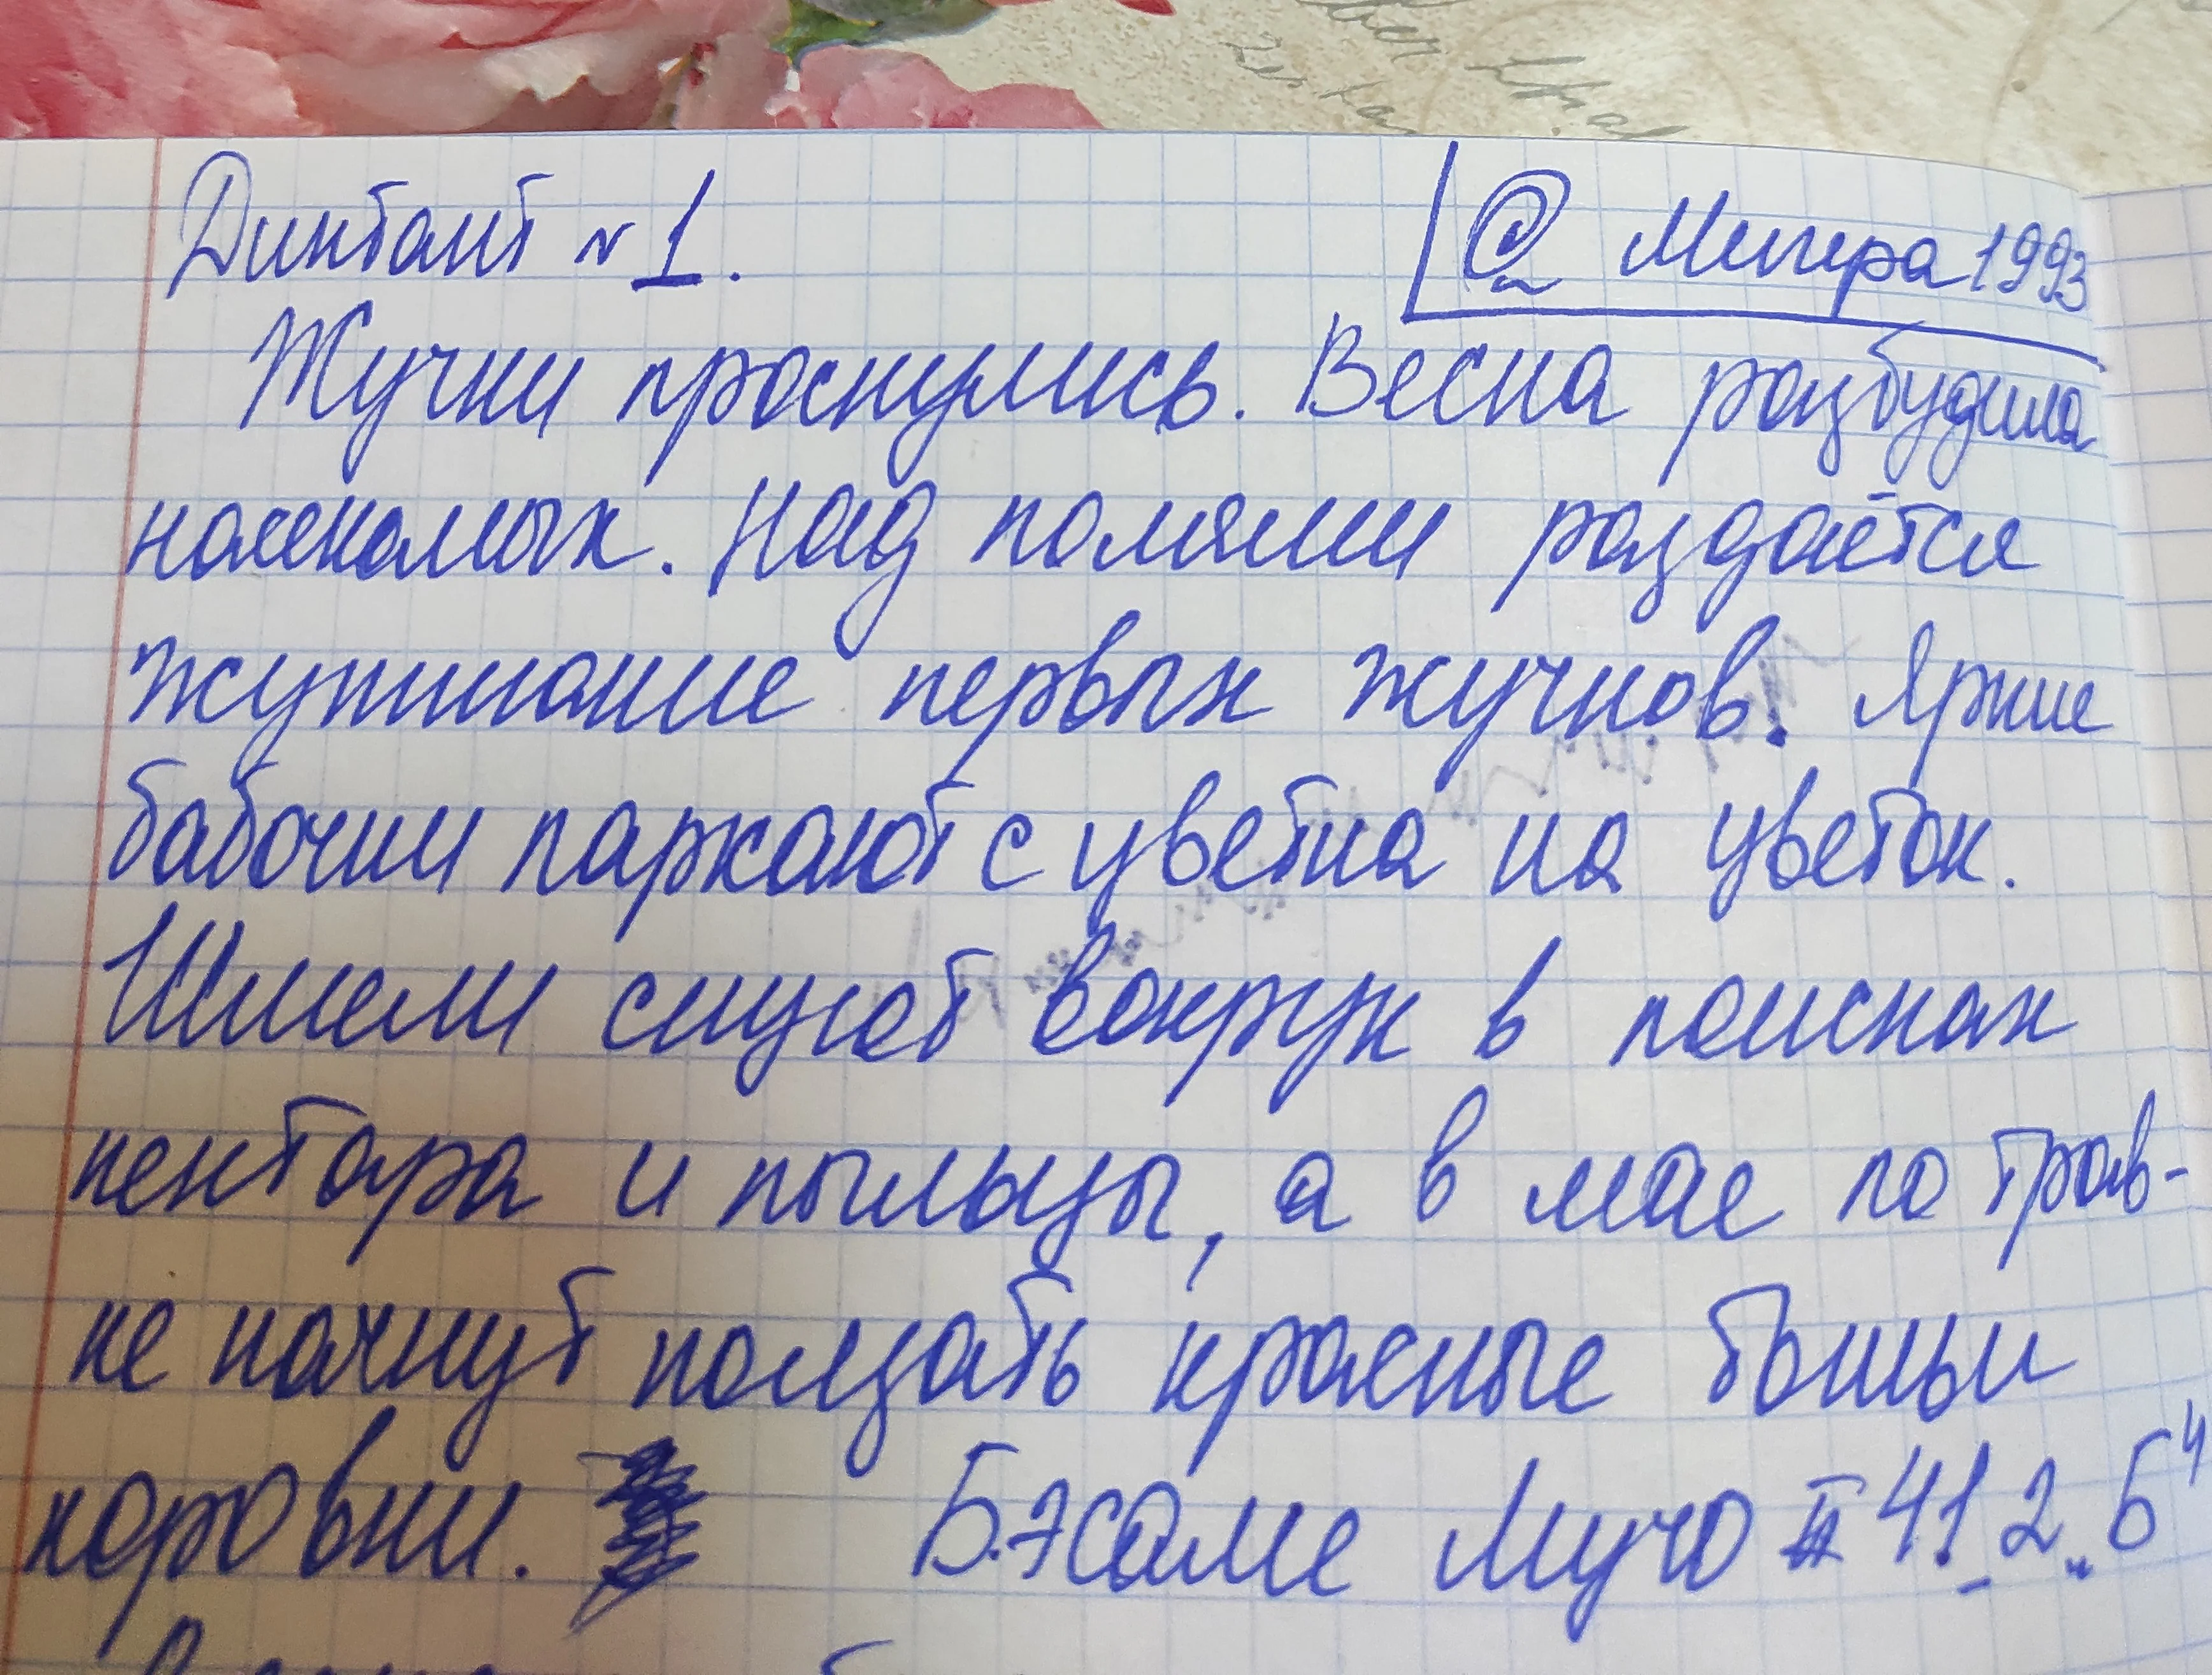 Диктант №1.
@ Мегера1993
Жучки праснулись. Весна разбудила
насекомых. Над полями раздаётся
жужжание первых жучков. Яркие
бабочки паркают с цветка на цветок.
Шмели снуют вокрук в поисках
нектара и пыльцы, а в мае по трав-
ке начнут ползать красные божьи
коровки. Б.эсаме Мучо